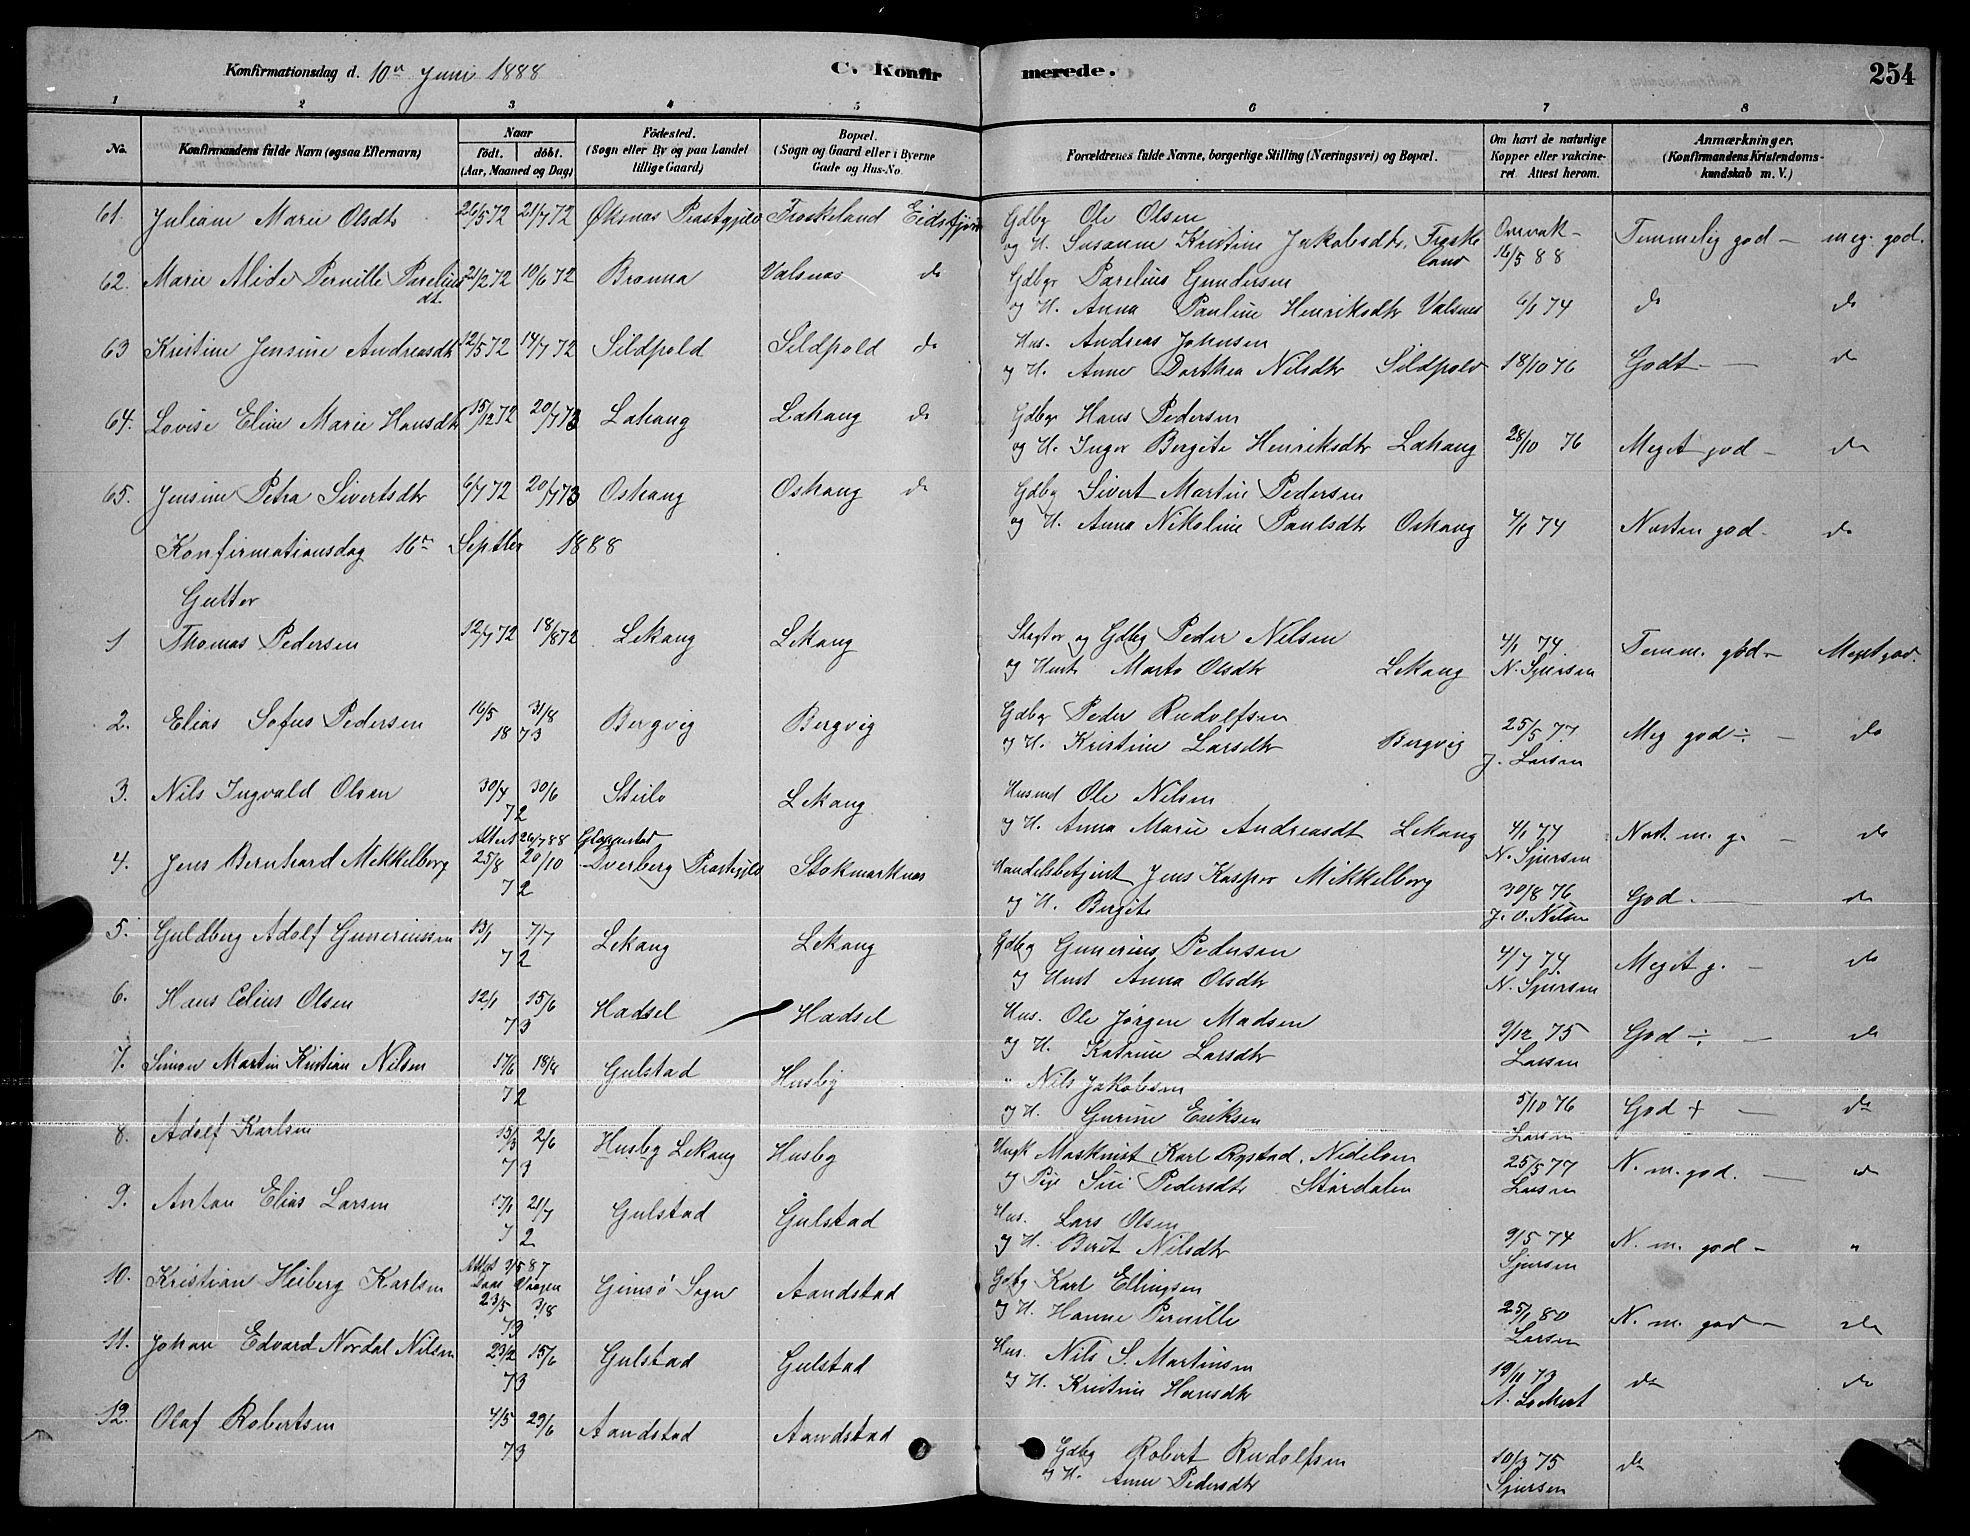 Konfirmationsdag d. 10de Juni 1888 C. Konfirmerede. 254
1 2 3 4 5 6 7 8
No. Konfirmandens fulde Navn (ogsaa Efternavn) Naar födt. döbt. (Aar, Maaned og Dag) Födested. (Sogn eller By og paa Landet tillige Gaard) Bopæl. (Sogn og Gaard eller i Byerne Gade og Hus-No. Forældrenes fulde Navne, borgerlige Stilling (Næringsvei) og Bopæl. Om havt de naturlige Kopper eller vakcineret. Attest herom. Anmærkninger. (Konfirmandens Kristendomskundskab m. V.)
61. Juliane Marie Olsdtr 26/5 72 21/7 72 Øksnæs Præstgjeld Froskeland Eidsfjord Gdbg Ole Olsen
og H. Susanne Kristine Jakobsdtr. Froskeland 16/5 88 Temmelig god — meg. god.
62. Marie Alide Pernille Pareliusdt. 21/2 72 10/6 72 Brønna Valsnæs do Gdbgr Parelius Gundersen
og H. Anna Pauline Henriksdtr Valsnes 6/1 74 do do
63 Kristine Jensine Andreasdtr 12/5 72 14/7 72 Sildpold Sildpold do Hus. Andreas Johnsen
og H. Anne Dorthea Nilsdtr Sildpold 18/10 76 Godt — do
64. Lovise Eline Marie Hansdtr 15/12 72 20/7 73 Lahaug Lahaug do Gdbgr Hans Pedersen
og H. Inger Bergite Henriksdtr Lahaug 28/10 76 Meget god — do
65. Jensine Petra Sivertsdtr 6/7 72 20/7 73 Oshaug Oshaug do Gdbg Sivert Martin Pedersen
og H. Anna Nikoline Paulsdtr Oshaug 4/1 74 Næsten god — do
Konfirmationsdag 16de Septbr 1888
Gutter
1 Thomas Pedersen 12/7 72 18/8 72 Lekang Lekang Slagter og Gdbg Peder Nilsen
og Hust. Marta Olsdtr Lekang 4/1 74. N. Sjursen Temm. god — Meget god.
2. Elias Sofus Pedersen 16/5 31/8 1873 Bergvig Bergvig Gdbgr Peder Rudolfsen
og H. Kristine Larsdtr Bergvig 25/5 77 J. Larsen Meg god ÷ — do
3. Nils Ingvald Olsen 30/4 30/6 72 Steilo Lekang Husmd Ole Nilsen
og H. Anna Marie Andreasdt Lekang 4/1 74 N. Sjursen Næst. m. g. — do
4. Jens Bernhard Mikkelborg Attest 26/7 88 25/8 20/10 72 Dverberg Præstegjeld Stokmarknæs Handelsbetjent Jens Kasper Mikkelborg
og H. Bergite 30/8 76 J. O. Nilsen God. — do
5. Guldberg Adolf Guneriussen 13/1 7/7 72 Lekang Lekang Gdbg Gunerius Pedersen
og Hust Anna Olsdtr 4/7 74. N. Sjursen Meget g. — do
6. Hans Edius Olsen 12/1 15/6 73 Hadsel Hadsel Hus. Ole Jørgen Madsen
og H. Katrine Larsdtr 9/12 75 Larsen God ÷ — do
7. Simon Martin Kristian Nilsen 17/6 18/8 72 Gulstad Husby " Nils Jakobsen
og H. Gurine Eriksen 5/10 76 Larsen God + — do
8. Adolf Karlsen 15/3 2/6 73 Husby Lekang Husby Ungk Maskinist Karl Rystad, Nidelven
og Pige Siri Pedersdtr Stördalen 25/5 77 Larsen N. m. god. — do
9. Anton Elias Larsen 17/1 21/7 72 Gulstad Gulstad Hus. Lars Olsen
og H. Berit Nilsdtr 9/5 74 Sjursen N. m. god — "
10. Kristian Heiberg Karlsen 23/5 3/8 73 Gimsö Sogn Aandstad Gdbg Karl Ellingsen
og H. Hanne Pernille 25/1 80 Larsen N. m. god — do
11. Johan Edvard Nordal Nilsen 23/2 15/6 73 Gulstad Gulstad Hus. Nils S. Martinsen
og H. Kristine Hansdtr 19/11 73 A. Lockert do do
12. Olaf Robertsen 4/5 29/6 73 Aandstad Aandstad Gdbg Robert Rudolfsen
og H. Anne Pedersdtr 10/3 75 Sjursen do